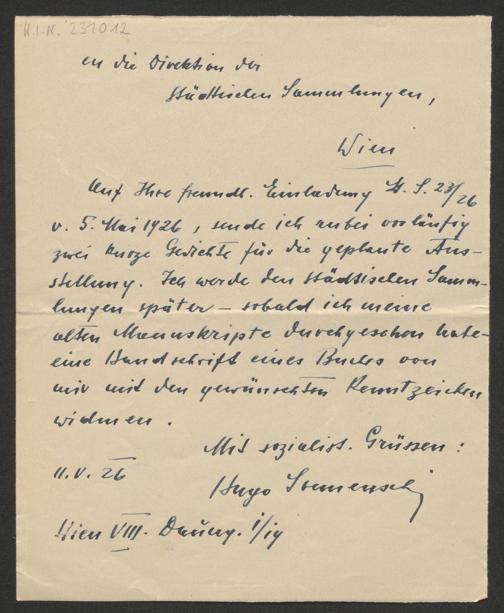 H.I.N. 231012
An die Direktion der
städtischen Sammlungen,
Wien
Auf Ihre freundl. Einladung St. S. 23/26
v. 5. Mai 1926, sende ich anbei vorläufig
zwei kurze Gedichte für die geplante Aus-
stellung. Ich werde den städtischen Samm-
lungen später – sobald ich meine
alten Manuskripte durchgesehen habe –
eine Handschrift eines Buches von
mir mit den gewünschten Kennzeichen
widmen.
Mit sozialist. Grüssen:
11.V.26
Hugo Sonnenschein
Wien VIII.